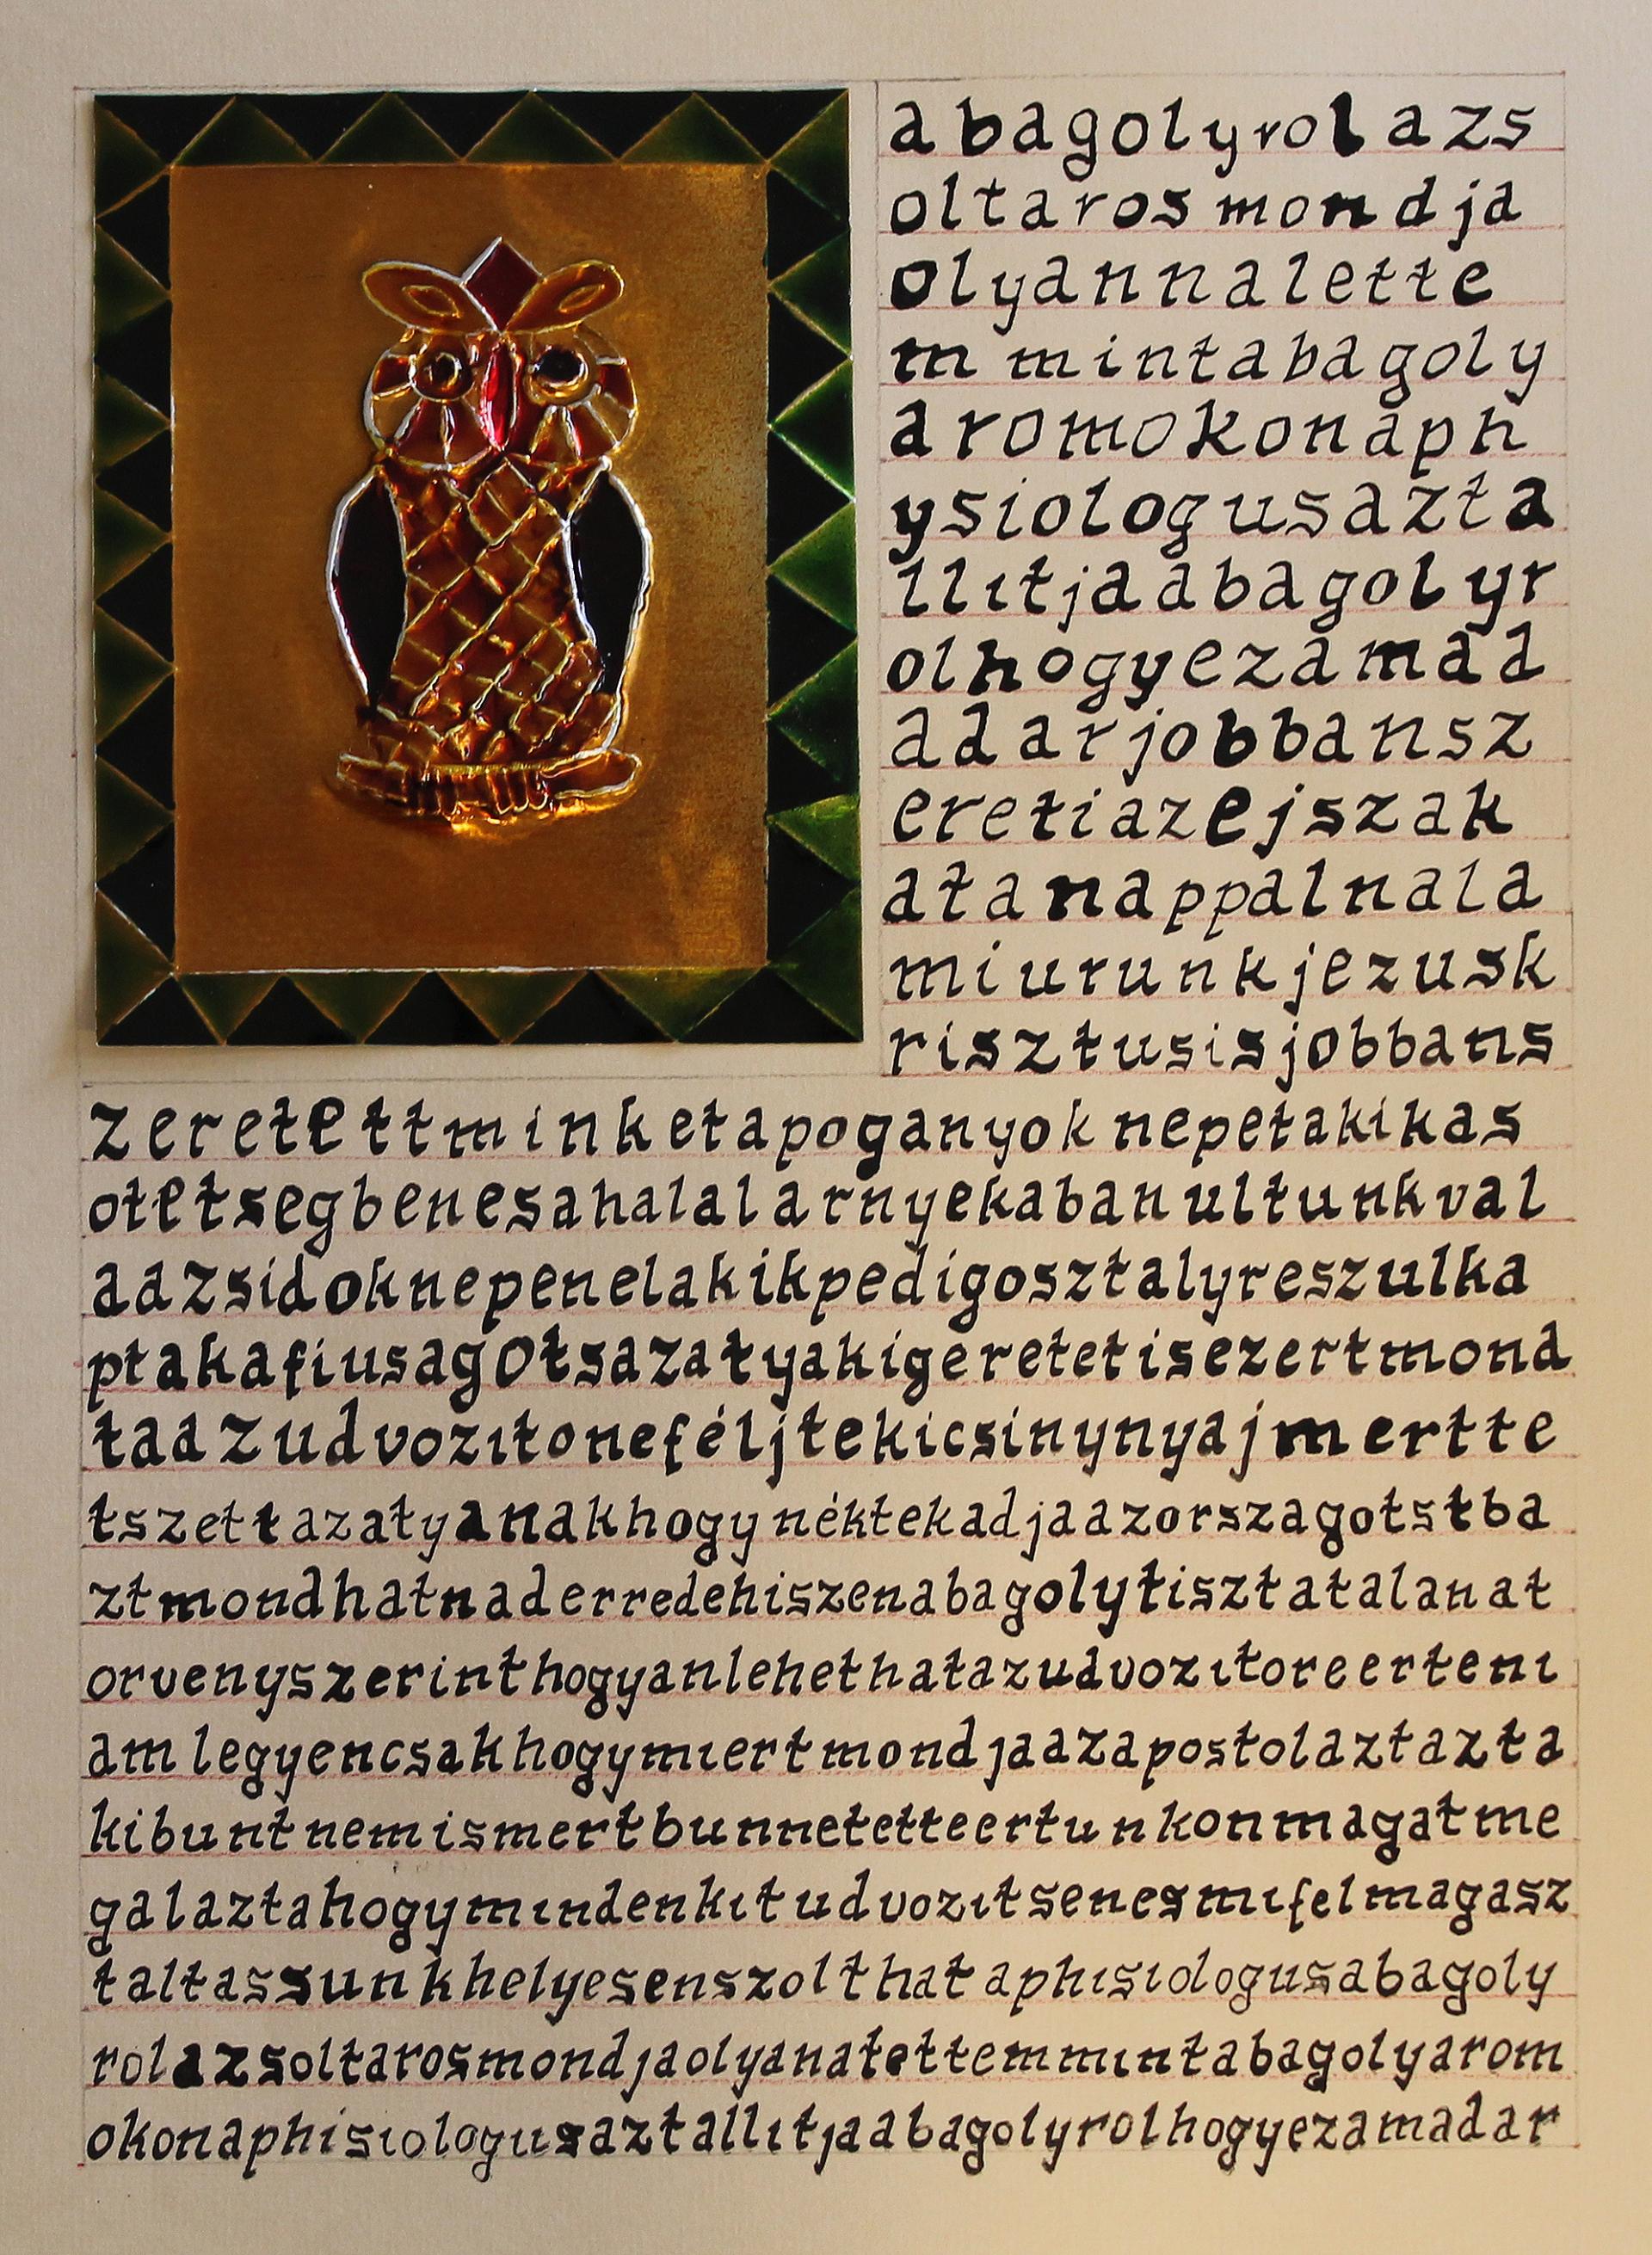 abagolyrol azs
oltaros mondja
olyannalette
m mintabagoly
aromokonaph
ysiologusazta
llıtjaabagolyr
olhogyezamad
adarjobbansz
eretiazejszak
atanappalnala
miurunkjezusk
risztusisjobbans
zeretettminketapoganyok nepetakikas
otetsegbenesahalalarnyekaban ultunkval
aazsidoknepenelakikpedigosztalyreszulka
ptakafiusagotsazatyakigeretetisezertmond
taazudvozıtoneféljtekicsinynyajmertte
tszettazatyanakhogy néktekadjaazorszagotstba
ztmondhatnaderredehiszenabagolytisztatalanat
orvenyszerinthogyanlehethatazudvozıtoreertenı
amlegyencsakhogymıertmondjaazapostolaztazta
kibuntnemismertbunnetetteertunkonmagatme
galaztahogymındenkıtudvozıtsenesmıfelmagasz
taltassunkhelyesenszolthat aphısıologusabagoly
rolazsoltarosmondjaolyanatettemmıntabagolyarom
okonaphisıologusaztallıtjaabagolyrolhogyezamadar